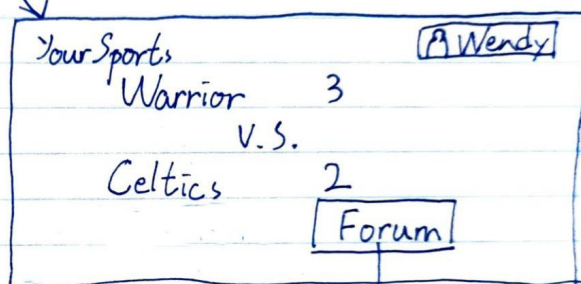 Your Sports
Wendy
Warrior 3
V.S.
Celtics 2
Forum